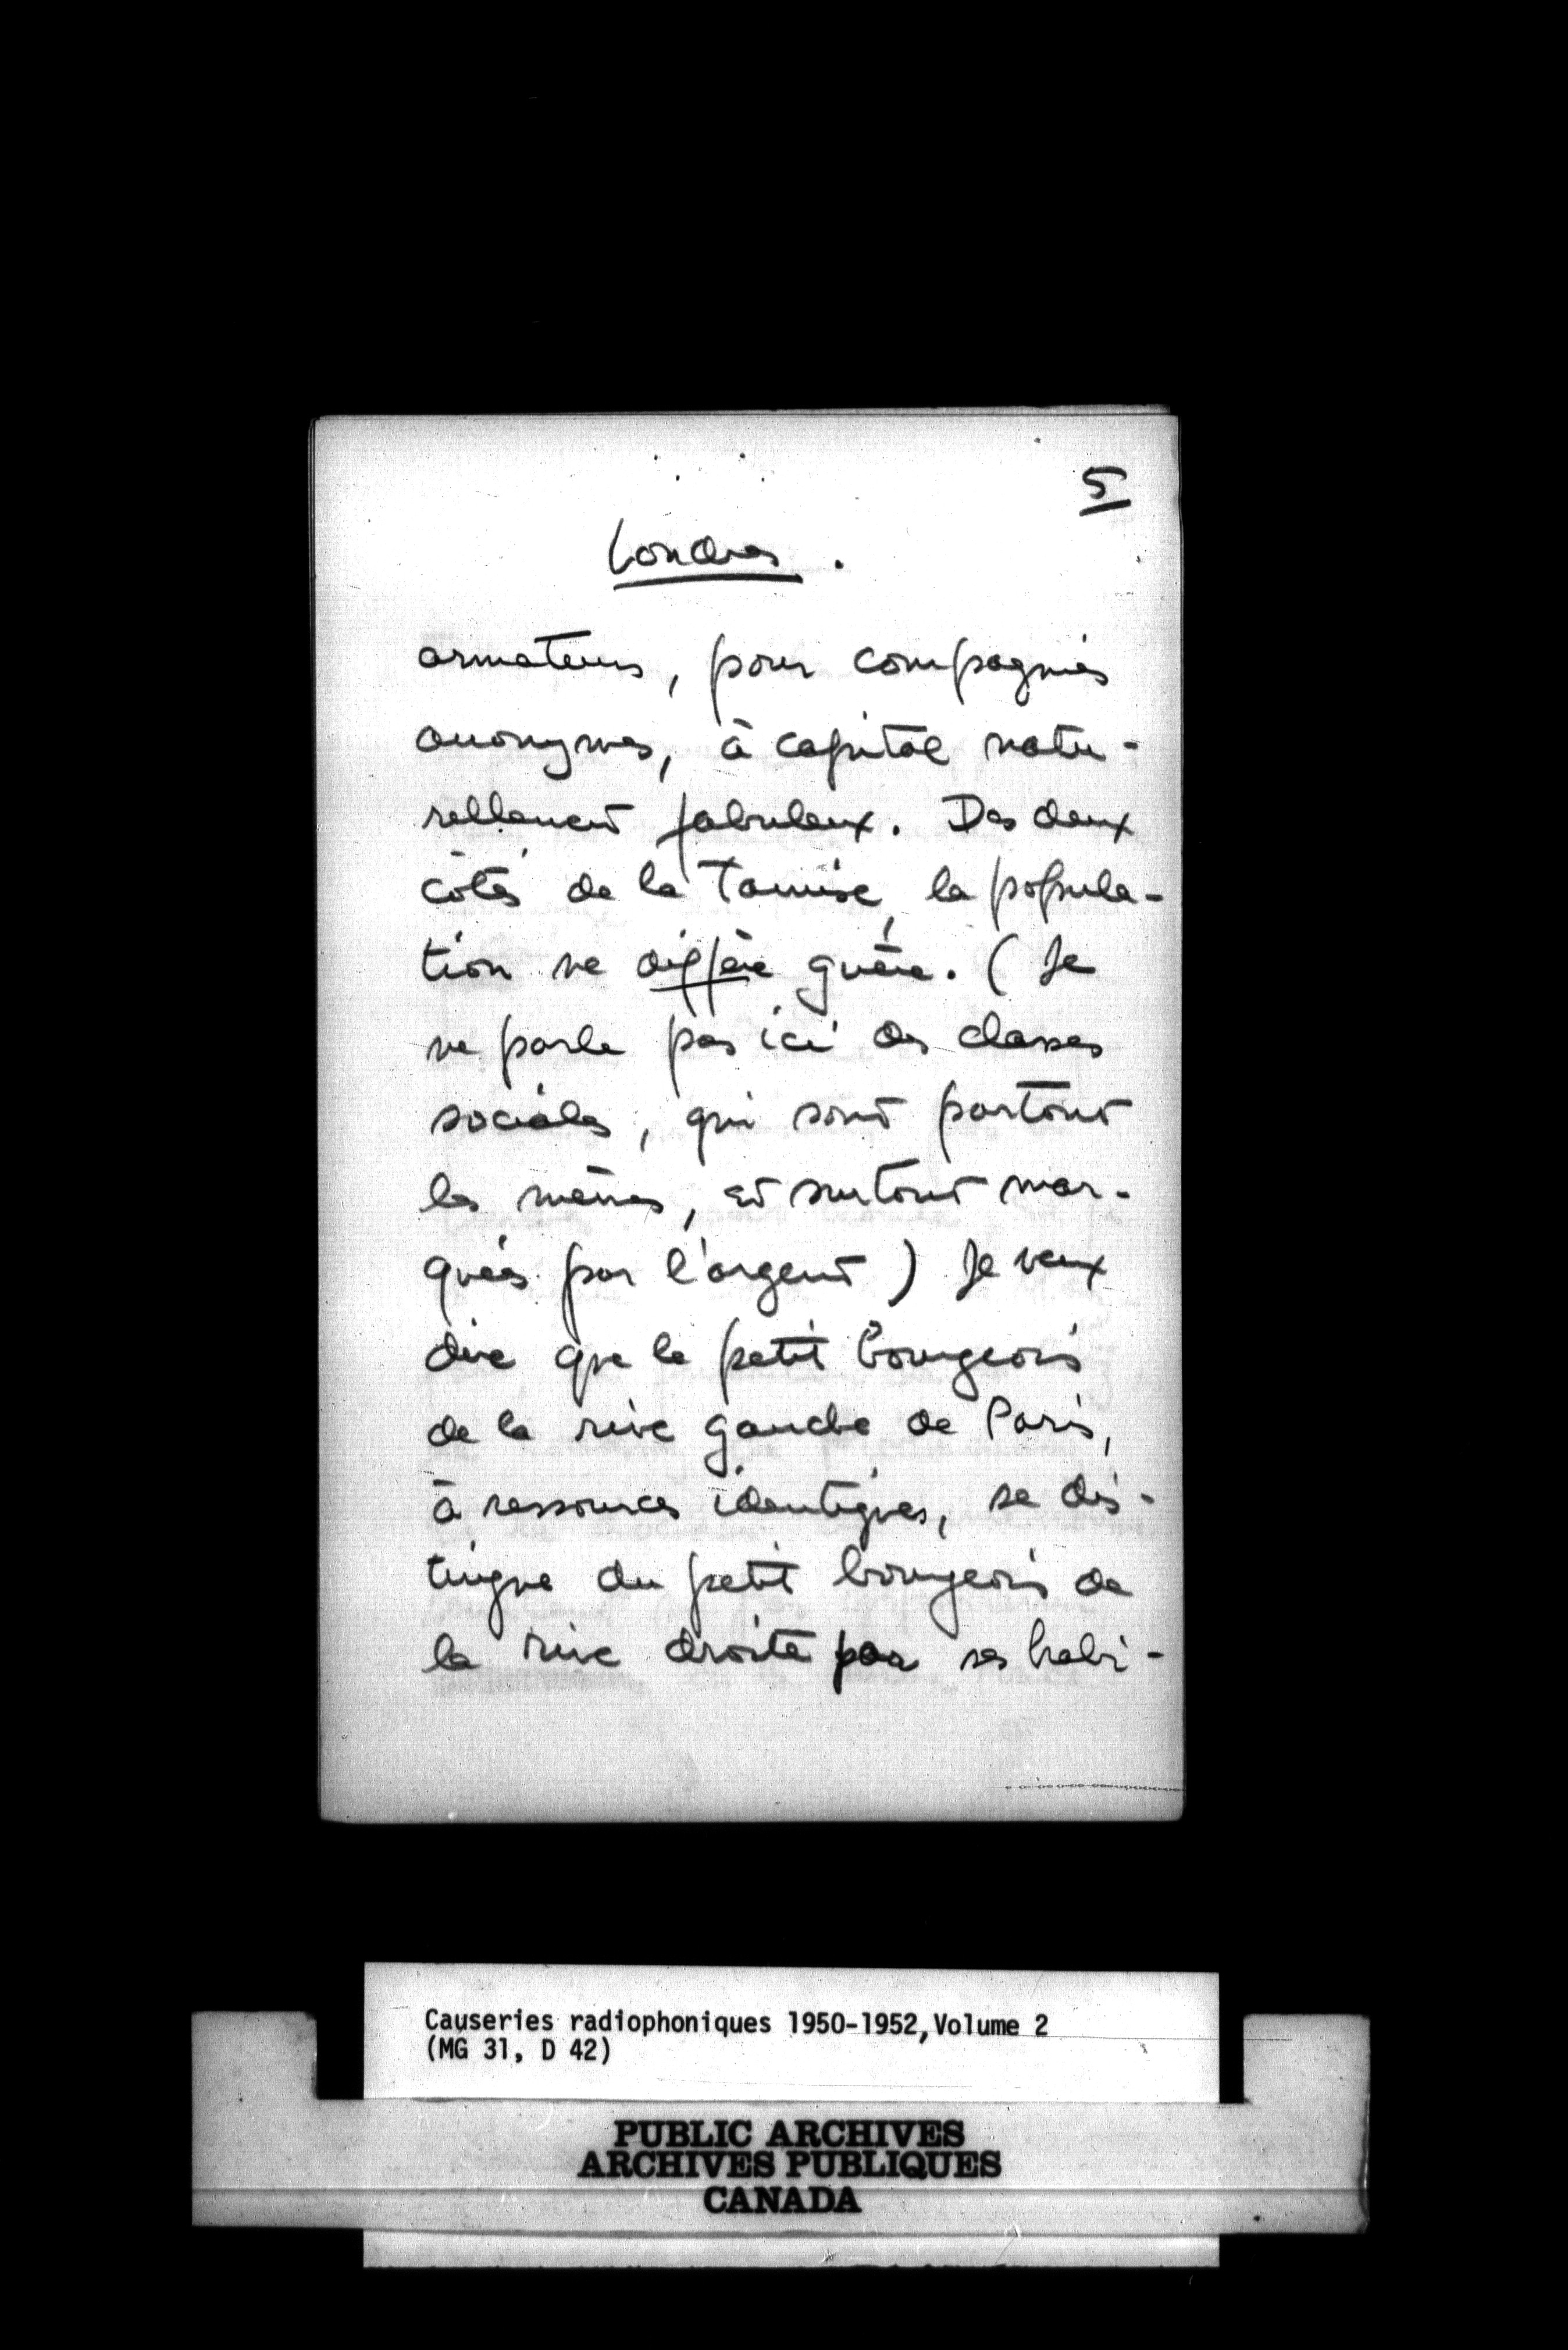 5
Londres.
armateurs, pour compagnies
anonymes, à capital natu-
rellement fabuleux. Des deux
côtés de la Tamise, la popula-
tion ne diffère guère. (Je
ne parle pas ici des classes
sociales, qui sont partout
les mêmes, et surtout mar-
quées par l'argent) Je veux
dire que le petit bourgeois
de la rive gauche de Paris,
à ressources identiques, se dis-
tingue du petit bourgeois de
la rive droite par ses habi-
Causeries radiophoniques 1950-1952, Volume 2
(MG 31, D 42)
PUBLIC ARCHIVES
ARCHIVES PUBLIQUES
CANADA